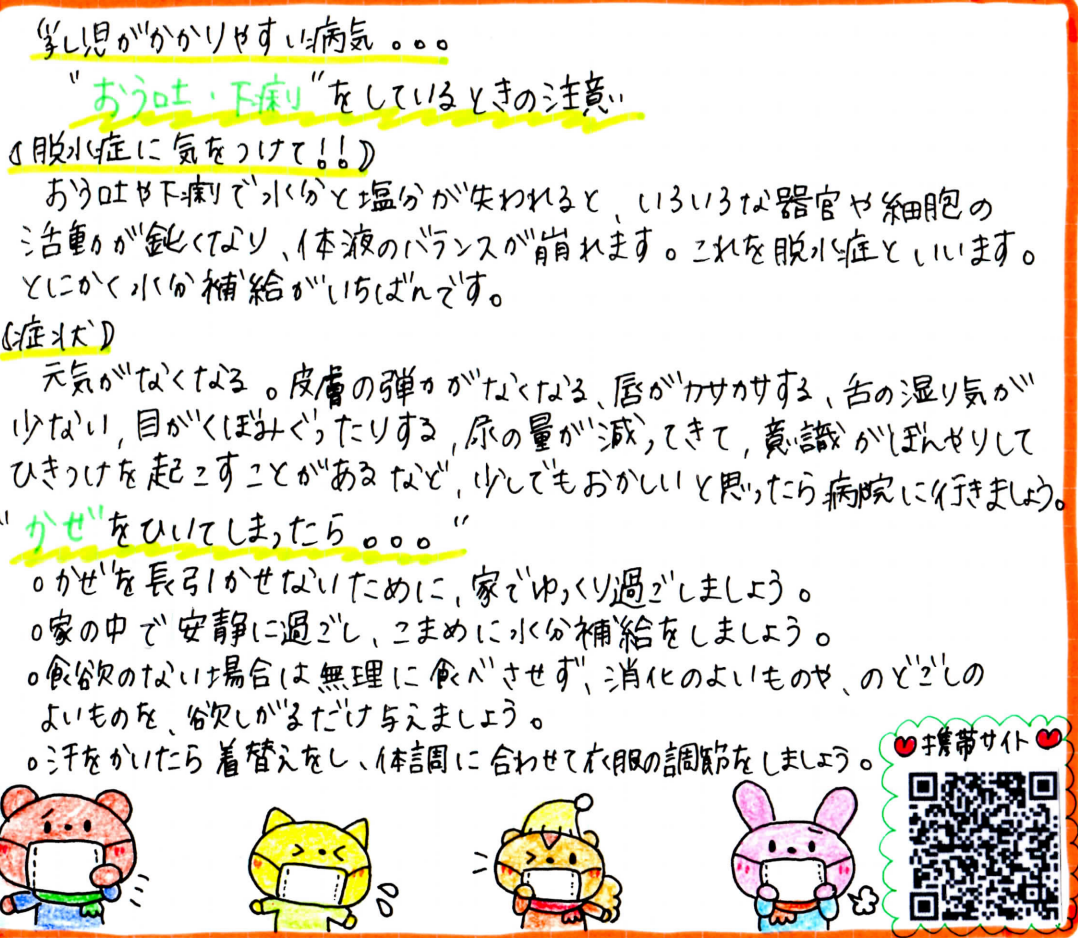 乳児がかかりやすい病気。。。
"おう吐・下痢"をしているときの注意
《脱水症に気をつけて!!》
おう吐や下痢で水分と塩分が失われると、いろいろな器官や細胞の
活動が鈍くなり、体液のバランスが崩れます。これを脱水症といいます。
とにかく水分補給がいちばんです。
《症状》
元気がなくなる。皮膚の弾力がなくなる、唇がカサカサする、舌の湿り気が
少ない、目がくぼみぐったりする、尿の量が減ってきて、意識がぼんやりして
ひきつけを起こすことがあるなど、少しでもおかしいと思ったら病院に行きましょう。
"かぜ"をひいてしまったら。。。"
○かぜを長引かせないために、家でゆっくり過ごしましょう。
○家の中で安静に過ごし、こまめに水分補給をしましょう。
○食欲のない場合は無理に食べさせず、消化のよいものや、のどごしの
よいものを、欲しがるだけ与えましょう。
○汗をかいたら着替えをし、体調に合わせて衣服の調節をしましょう。
携帯サイト